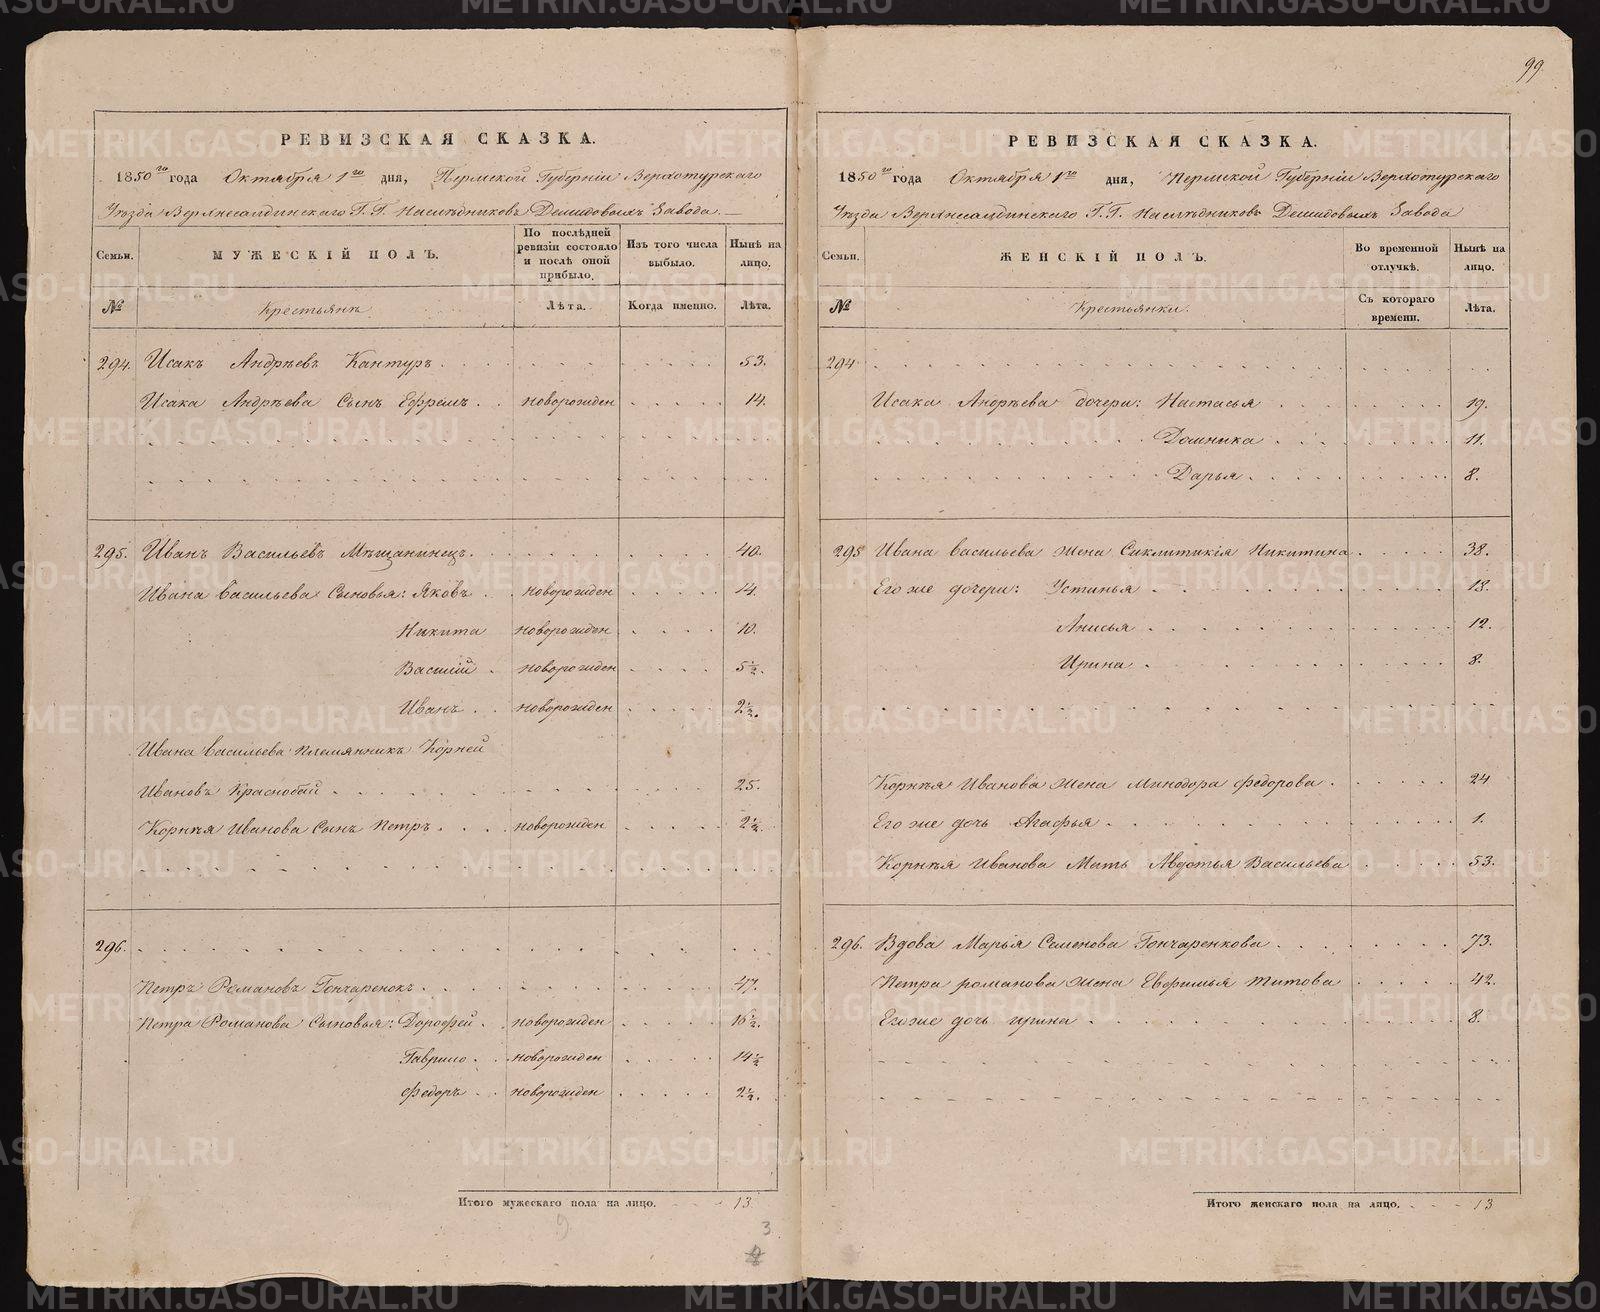 99
РЕВИЗСКАЯ СКАЗКА.
1850го года Октября 1го дня, Пермской Губерніи Верхотурскаго
Уѣзда Верхнесалдинскаго Г.Г. Наслѣдниковъ Демидовыхъ Завода.
Семьи. МУЖЕСКІЙ ПОЛЪ. По послѣдней ревизіи состояло и послѣ оной прибыло. Изъ того числа выбыло. Нынѣ на лицо.
№ Крестьянъ Лѣта. Когда именно. Лѣта.
294. Исакъ Андрѣевъ Кантуръ 53.
Исака Андрѣева Сынъ Ефремъ новорожден 14.
295. Иванъ Васильевъ Мѣщанинецъ 40.
Ивана Васильева Сыновья: Яковъ новорожден 14.
Никита новорожден 10.
Василій новорожден 5½.
Иванъ новорожден 2½.
Ивана Васильева племянникъ Корней
Ивановъ Краснобай 25.
Корнѣя Иванова Сынъ Петръ новорожден 2½.
296.
Петръ Романовъ Гончаренокъ 47.
Петра Романова Сыновья: Дорофей новорожден 16½.
Гаврило новорожден 14½
Федоръ новорожден 2½.
Итого мужескаго пола на лицо. 13
9
3
РЕВИЗСКАЯ СКАЗКА.
1850го года Октября 1го дня, Пермской Губерніи Верхотурскаго
Уѣзда Верхнесалдинскаго Г.Г. Наслѣдниковъ Демидовыхъ Завода
Семьи. ЖЕНСКІЙ ПОЛЪ. Во временной отлучкѣ. Нынѣ на лицо.
№ Крестьянки. Съ котораго времени. Лѣта.
294
Исака Андрѣева дочери: Настасья 19.
Домника 11.
Дарья 8.
295 Ивана Васильева жена Сиклитикія Никитина 38.
Его же дочери: Устинья 18.
Анисья 12.
Ирина 8.
Корнѣя Иванова жена Минодора Федорова 24
Его же дочь Агафья 1.
Корнѣя Иванова Мать Авдотья Васильева 53.
296. Вдова Марья Семенова Гончаренкова 73.
Петра Романова жена Евфимья Титова 42.
Его же дочь Ирина 8.
Итого женскаго пола на лицо. 13
METRIKI.GASO-URAL.RU